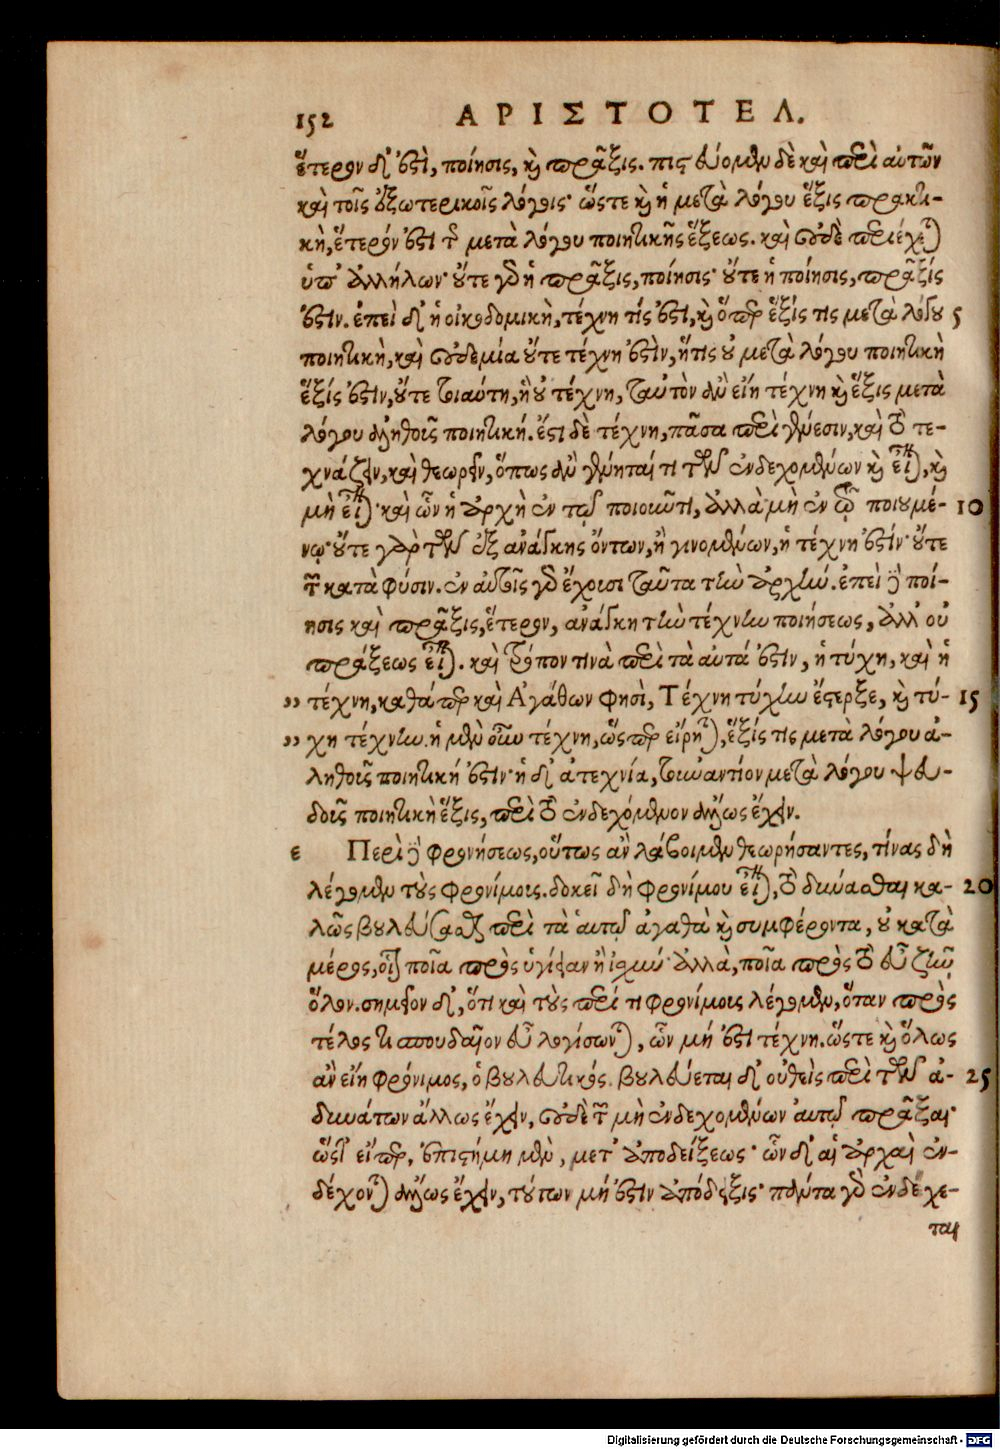 152 ΑΡΙΣΤΟΤΕΛ.
ἕτερον δ' ἐστὶ, ποίησις, καὶ πρᾶξις. πιστεύομεν δὲ καὶ περὶ αὐτῶν
καὶ τοῖς ἐξωτερικοῖς λόγοις· ὥστε καὶ ἡ μετὰ λόγου ἕξις πρακτι-
κὴ, ἕτερόν ἐστι τῆς μετὰ λόγου ποιητικῆς ἕξεως. καὶ οὐδὲ περιέχεται
ὑπ' ἀλλήλων· οὔτε γὰρ ἡ πρᾶξις, ποίησις· οὔτε ἡ ποίησις, πρᾶξίς
ἐστιν. ἐπεὶ δ' ἡ οἰκοδομικὴ, τέχνη τίς ἐστι, καὶ ὅπερ ἕξίς τις μετὰ λόγου 5
ποιητικὴ, καὶ οὐδεμία οὔτε τέχνη ἐστὶν, ἥτις οὐ μετὰ λόγου ποιητικὴ
ἕξίς ἐστιν, οὔτε τοιαύτη, ἣ οὐ τέχνη, ταυτὸν ἂν εἴη τέχνη καὶ ἕξις μετὰ
λόγου ἀληθοῦς ποιητική. ἔστι δὲ τέχνη, πᾶσα περὶ γένεσιν, καὶ τὸ τε-
χνάζειν, καὶ θεωρεῖν, ὅπως ἂν γένηταί τι τῶν ἐνδεχομένων καὶ εἶναι, καὶ
μὴ εἶναι· καὶ ὧν ἡ ἀρχὴ ἐν τῷ ποιοῦντι, ἀλλὰ μὴ ἐν τῷ ποιουμέ- 10
νῳ· οὔτε γὰρ τῶν ἐξ ἀνάγκης ὄντων, ἢ γινομένων, ἡ τέχνη ἐστίν· οὔτε
τῶν κατὰ φύσιν. ἐν αὑτοῖς γὰρ ἔχουσι ταῦτα τὴν ἀρχήν. ἐπεὶ δὲ ποί-
ησις καὶ πρᾶξις, ἕτερον, ἀνάγκη τὴν τέχνην ποιήσεως, ἀλλ' οὐ
πράξεως εἶναι. καὶ τρόπον τινὰ περὶ τὰ αὐτά ἐστιν, ἡ τύχη, καὶ ἡ
" τέχνη, καθάπερ καὶ Ἀγάθων φησὶ, Τέχνη τύχην ἔστερξε, καὶ τύ- 15
" χη τέχνην. ἡ μὲν οὖν τέχνη, ὥσπερ εἴρηται, ἕξίς τις μετὰ λόγου ἀ-
ληθοῦς ποιητική ἐστιν· ἡ δ' ἀτεχνία, τοὐναντίον μετὰ λόγου ψευ-
δοῦς ποιητικὴ ἕξις, περὶ τὸ ἐνδεχόμενον ἄλλως ἔχειν.
ε Περὶ δὲ φρονήσεως, οὕτως ἂν λάβοιμεν θεωρήσαντες, τίνας δὴ
λέγομεν τοὺς φρονίμους. δοκεῖ δὴ φρονίμου εἶναι, τὸ δύνασθαι κα- 20
λῶς βουλεύσασθαι περὶ τὰ αὑτῷ ἀγαθὰ καὶ συμφέροντα, οὐ κατὰ
μέρος, οἷον ποῖα πρὸς ὑγίειαν ἢ ἰσχύν· ἀλλὰ, ποῖα πρὸς τὸ εὖ ζῆν
ὅλον. σημεῖον δ', ὅτι καὶ τοὺς περί τι φρονίμους λέγομεν, ὅταν πρὸς
τέλος τι σπουδαῖον εὖ λογίσωνται, ὧν μή ἐστι τέχνη. ὥστε καὶ ὅλως
ἂν εἴη φρόνιμος, ὁ βουλευτικός. βουλεύεται δ' οὐθεὶς περὶ τῶν ἀ- 25
δυνάτων ἄλλως ἔχειν, οὐδὲ τῶν μὴ ἐνδεχομένων αὐτῷ πρᾶξαι·
ὥστ' εἴπερ, ἐπιστήμη μὲν, μετ' ἀποδείξεως· ὧν δ' αἱ ἀρχαὶ ἐν-
δέχονται ἄλλως ἔχειν, τούτων μή ἐστιν ἀπόδειξις· πάντα γὰρ ἐνδέχε-
ται
Digitalisierung gefördert durch die Deutsche Forschungsgemeinschaft - DFG